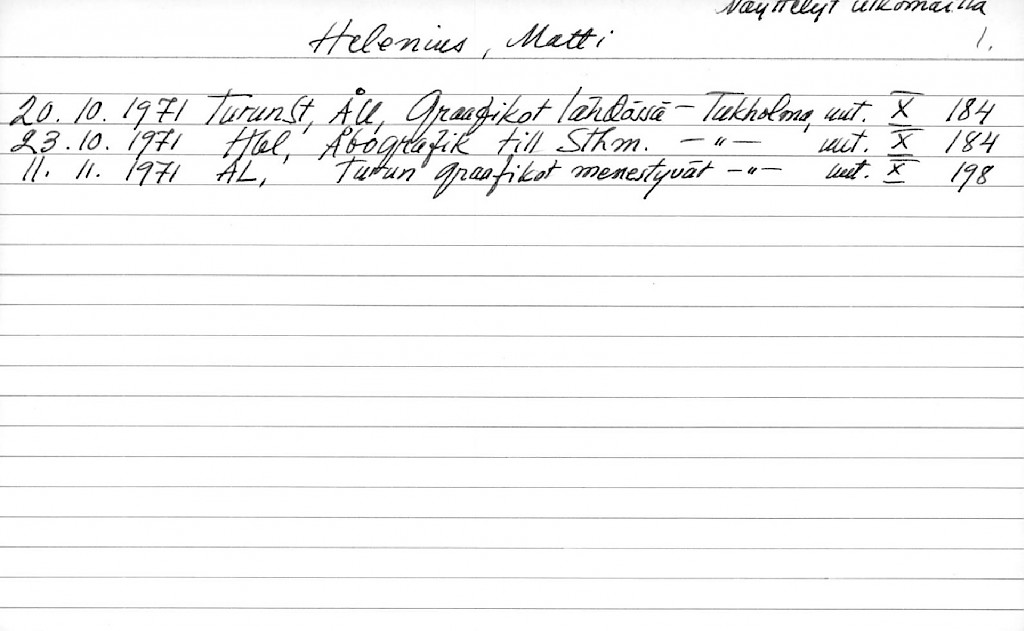 Näyttelyt ulkomailla
Helenius, Matti 1.
20. 10. 1971 TurunSt, ÅU, Graafikot lähdössä - Tukholma, uut. X 184
23. 10. 1971 Hbl, Åbografik till Sthm. - " - uut. X 184
11. 11. 1971 AL, Turun graafikot menestyvät - " - uut. X 198